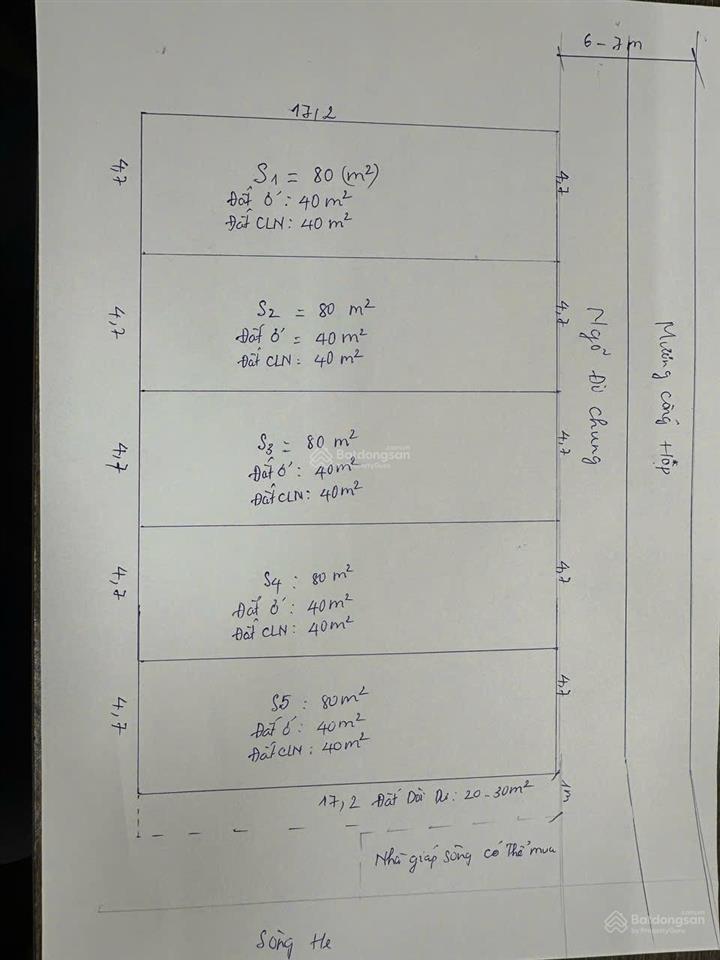 6 - 7m
17,2
4,7
S1 = 80 (m²)
Đất ở : 40 m²
Đất CLN : 40 m²
4,7
4,7
S2 = 80 m²
Đất ở = 40 m²
Đất CLN : 40 m²
4,7
Ngõ Đi chung
Mương cống Hộp
4,7
S3 = 80 m²
Đất ở : 40m²
Đất CLN : 40m²
4,7
Batdongsan
.com.vn
by PropertyGuru
4,7
S4 : 80 m²
Đất ở : 40m²
Đất CLN : 40m²
4,7
4,7
S5 : 80m²
Đất ở : 40m²
Đất CLN : 40m²
4,7
17,2 Đất Dôi Dư : 20 - 30m²
1m
Nhà giáp sông có thể mua
Sông He
Batdongsan
.com.vn
by PropertyGuru